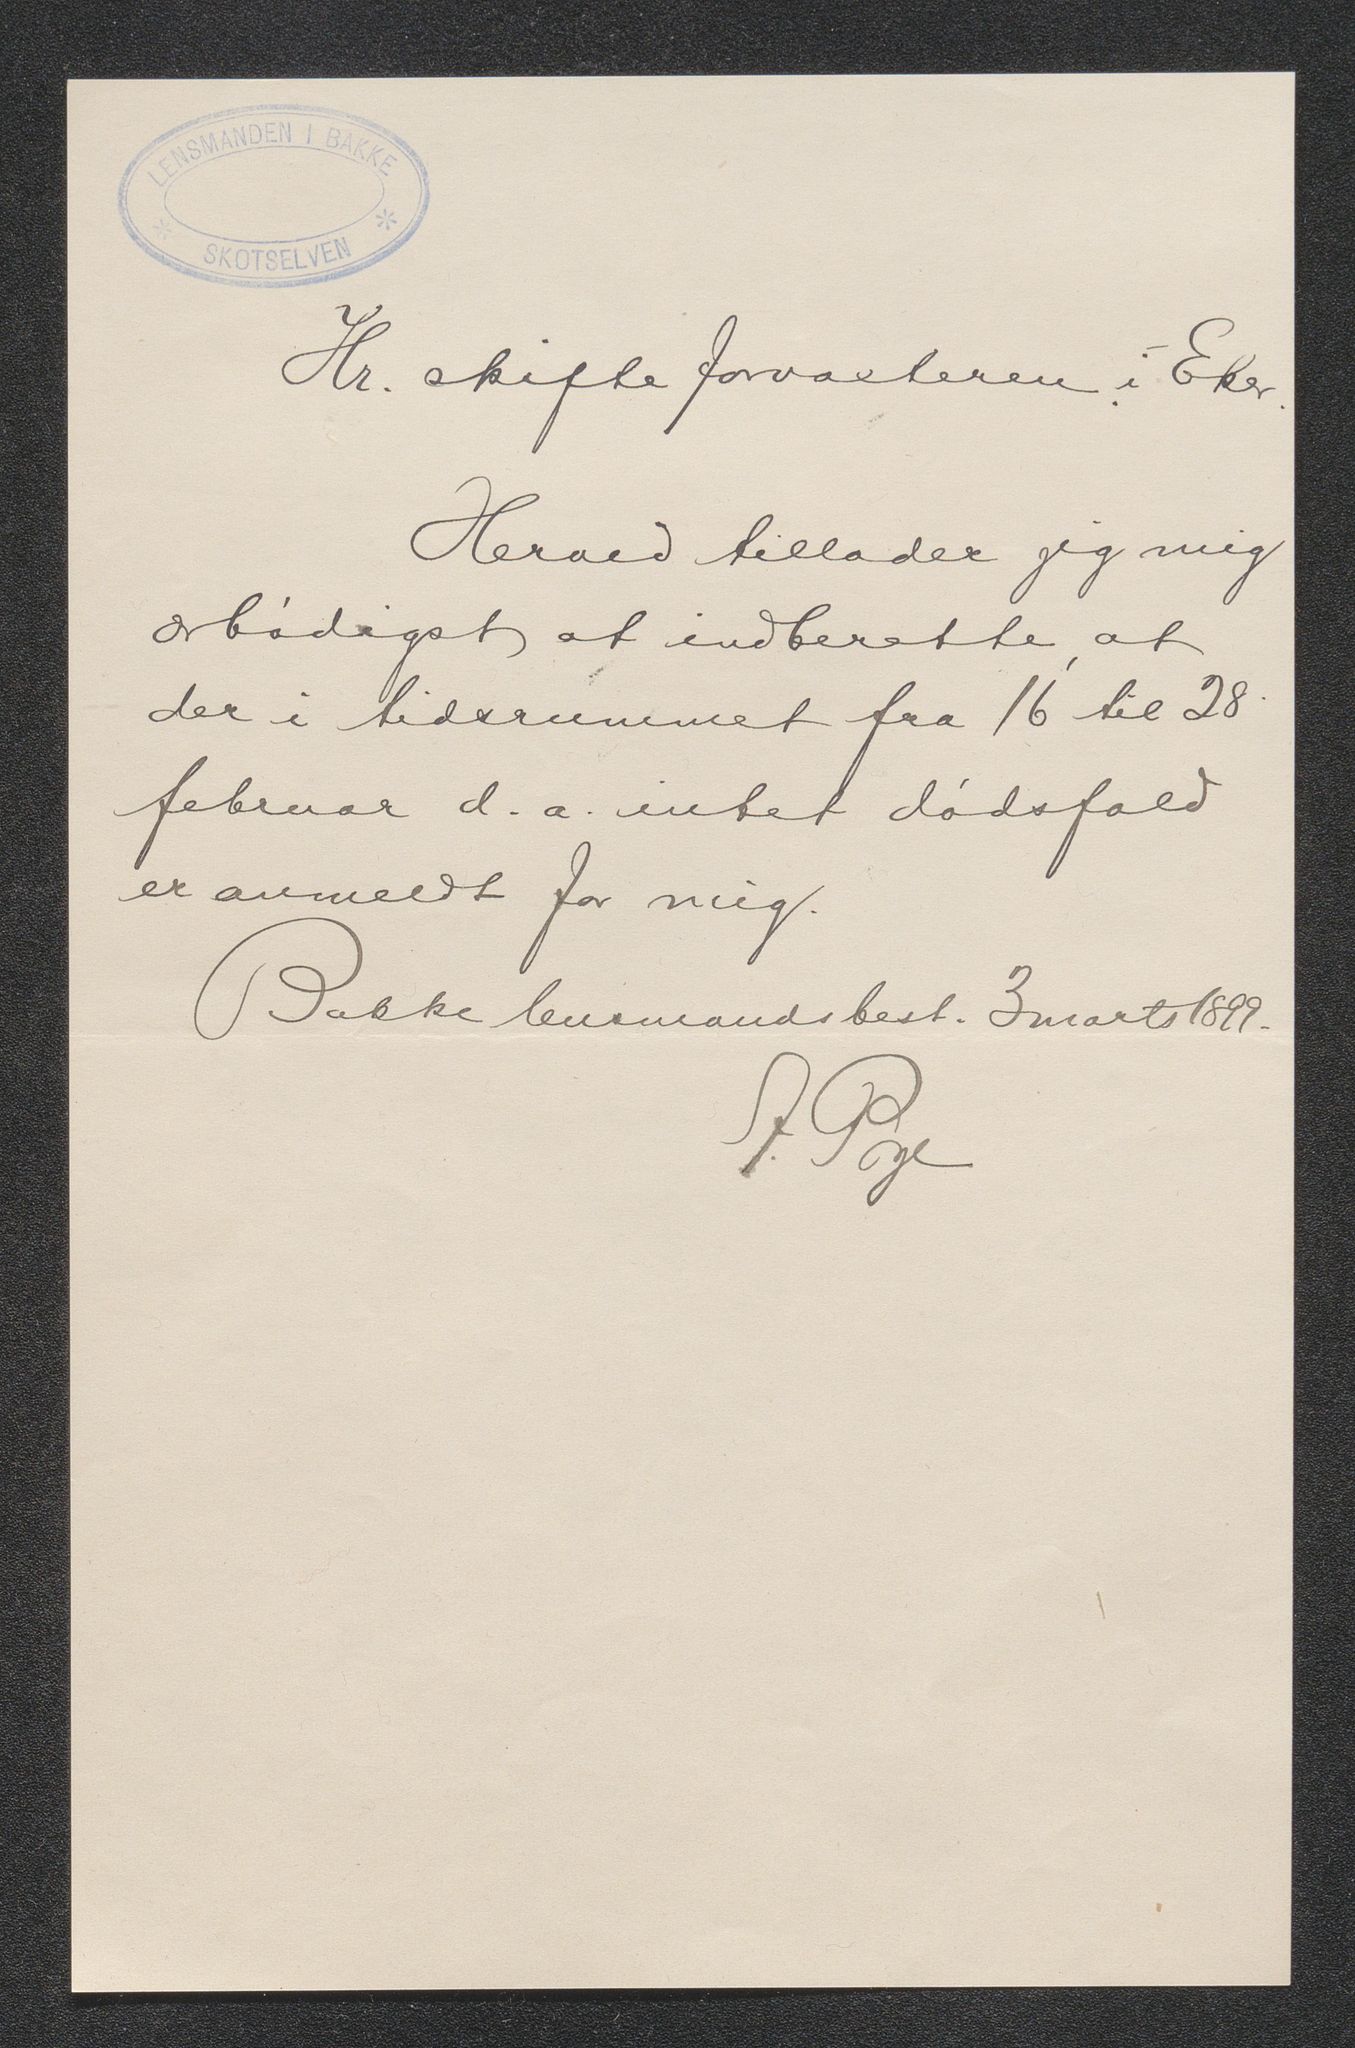 LENSMANDEN I BAKKE
* SKOTSELVEN *
Hr. skifteforvalteren i Eker.
Herved tillader jeg mig
ærbødigst at indberette, at
der i tidsrummet fra 16 til 28
februar d. a. intet dødsfald
er anmeldt for mig.
Bakke lensmandsbest. 3 marts 1899.